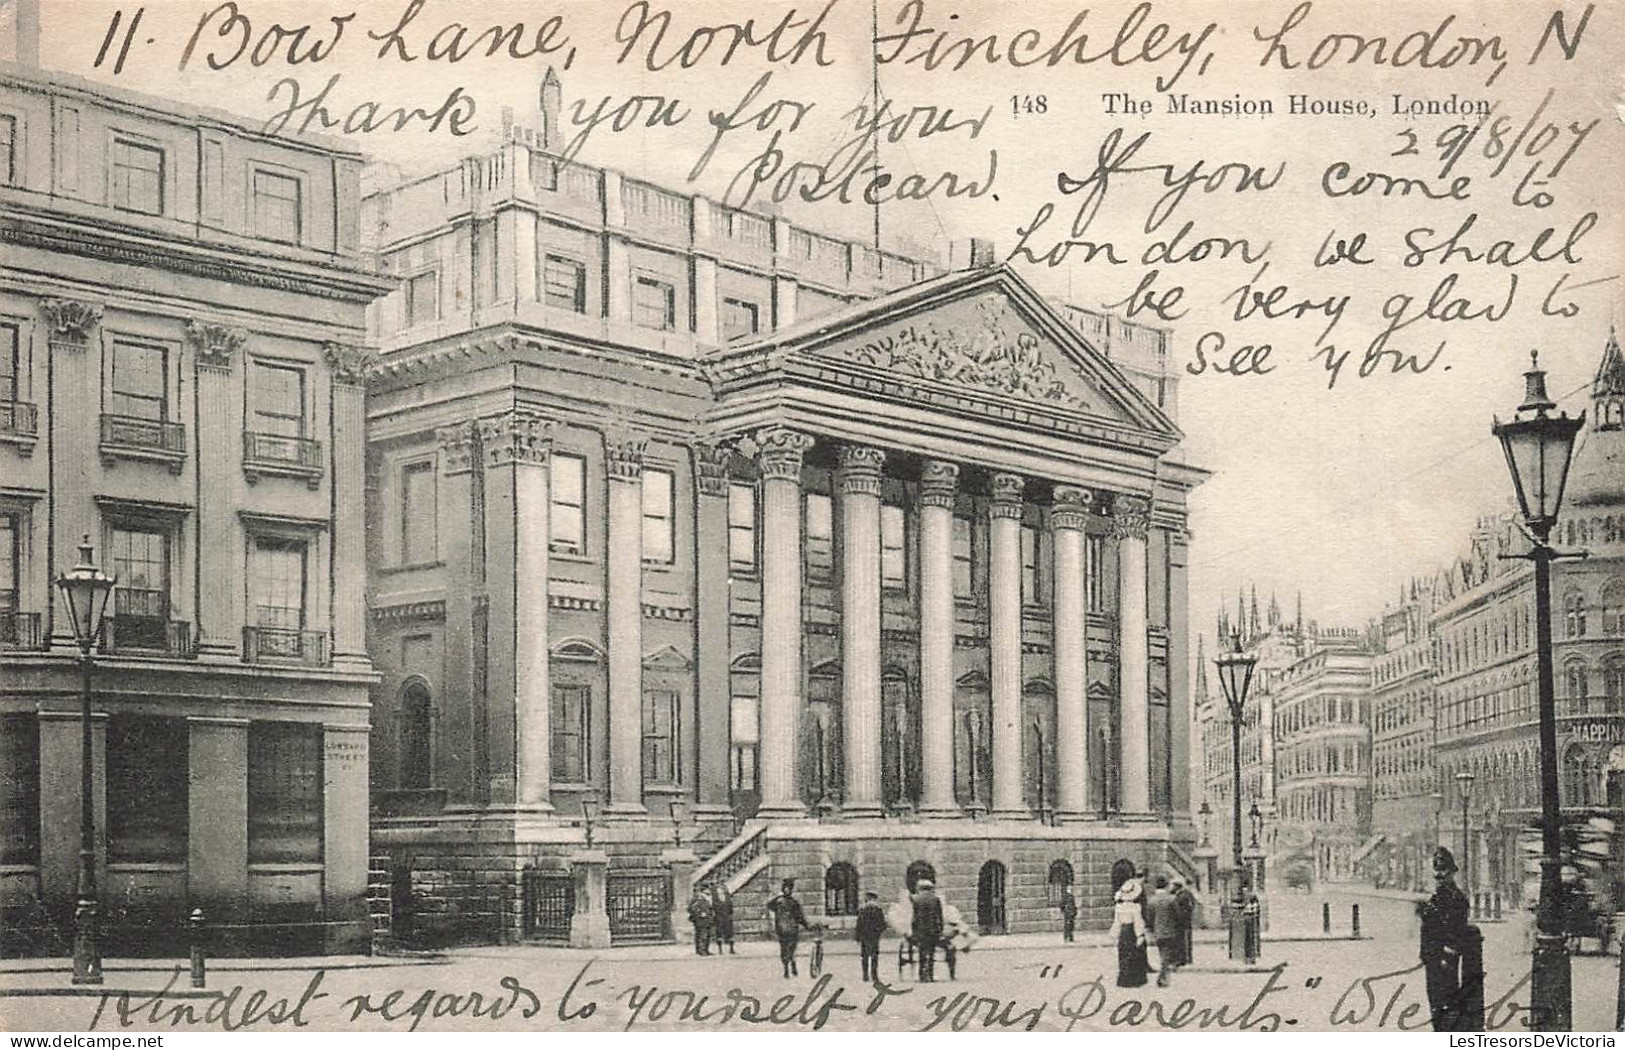 11. Bow Lane, North Finchley, London, N
148 The Mansion House, London
29/8/07
Thank you for your
Postcard. If you come to
London, we shall
be very glad to
see you.
LOMBARD
STREET
MAPPIN
Kindest regards to yourself & your "Parents."
LesTresorsDeVictoria